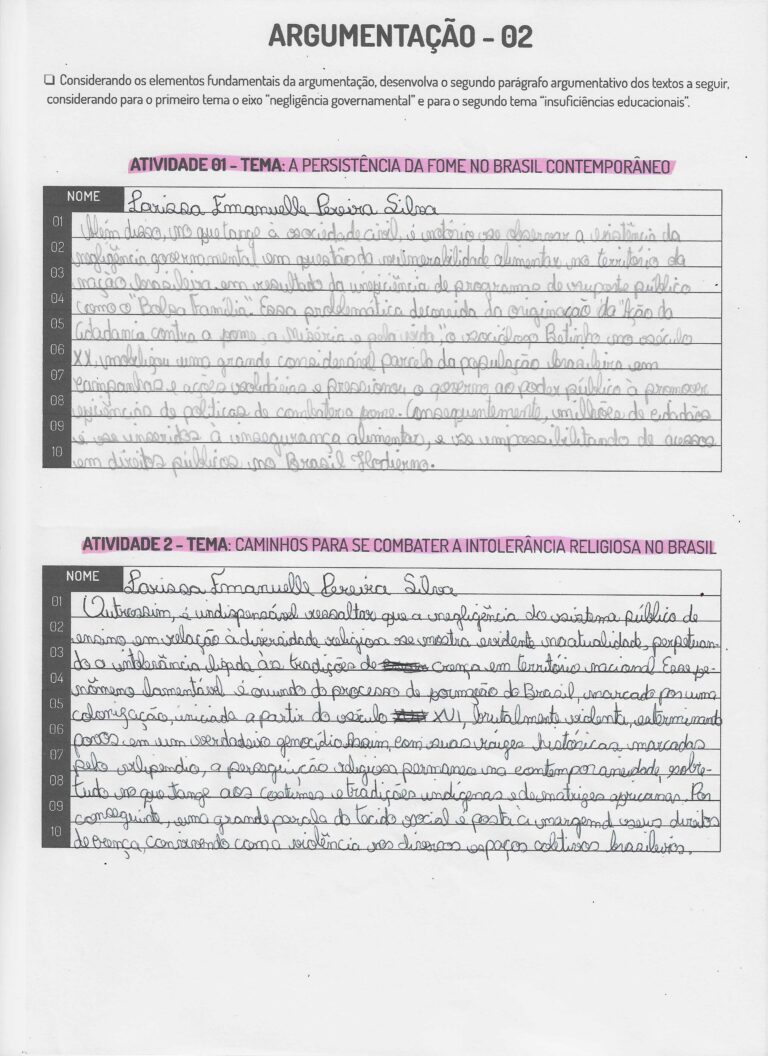 ARGUMENTAÇÃO - 02
❏ Considerando os elementos fundamentais da argumentação, desenvolva o segundo parágrafo argumentativo dos textos a seguir,
considerando para o primeiro tema o eixo "negligência governamental" e para o segundo tema "insuficiências educacionais".
ATIVIDADE 01 - TEMA: A PERSISTÊNCIA DA FOME NO BRASIL CONTEMPORÂNEO
NOME Larissa Emanuelle Pereira Silva
01 Além disso, no que tange à sociedade civil, é notório se observar a existência da
02 negligência governamental em questão da vulnerabilidade alimentar no território da
03 nação brasileira, em resultado da ineficiência de programas de suporte público
04 como o "Bolsa Família". Essa problemática decorrida da originação da "Ação da
05 Cidadania contra a fome, a Miséria e pela vida," o sociólogo Betinho no século
06 XX, mobilizou uma grande considerável parcela da população brasileira em
07 campanhas e ações voluntárias e pressionou o governo ao poder público à promover
08 de políticas de combate a fome. Consequentemente, milhões de cidadãos
09 é se inseridos à insegurança alimentar, e se impossibilitando de acesso
10 em direitos públicos no Brasil Hodierno.
ATIVIDADE 2 - TEMA: CAMINHOS PARA SE COMBATER A INTOLERÂNCIA RELIGIOSA NO BRASIL
NOME Larissa Emanuelle Pereira Silva
01 Outrossim, é indispensável ressaltar que a negligência do sistema público de
02 ensino em relação à diversidade religiosa se mostra evidente na atualidade, perpetuan-
03 do a intolerância ligada às tradições de crença em território nacional. Esse fe-
04 nômeno lamentável é oriundo do processo de formação do Brasil, marcado por uma
05 colonização, iniciada a partir do século XVI, brutalmente violenta, exterminando
06 povos em um verdadeiro genocídio. Assim, com suas raízes históricas marcadas
07 pelo vilipêndio, a perseguição religiosa permanece na contemporaneidade, sobre-
08 tudo no que tange aos costumes e tradições indígenas e de matrizes africanas. Por
09 conseguinte, uma grande parcela do tecido social é posta à margem d seus direitos
10 de crença, convivendo com a violência nos diversos espaços coletivos brasileiros.